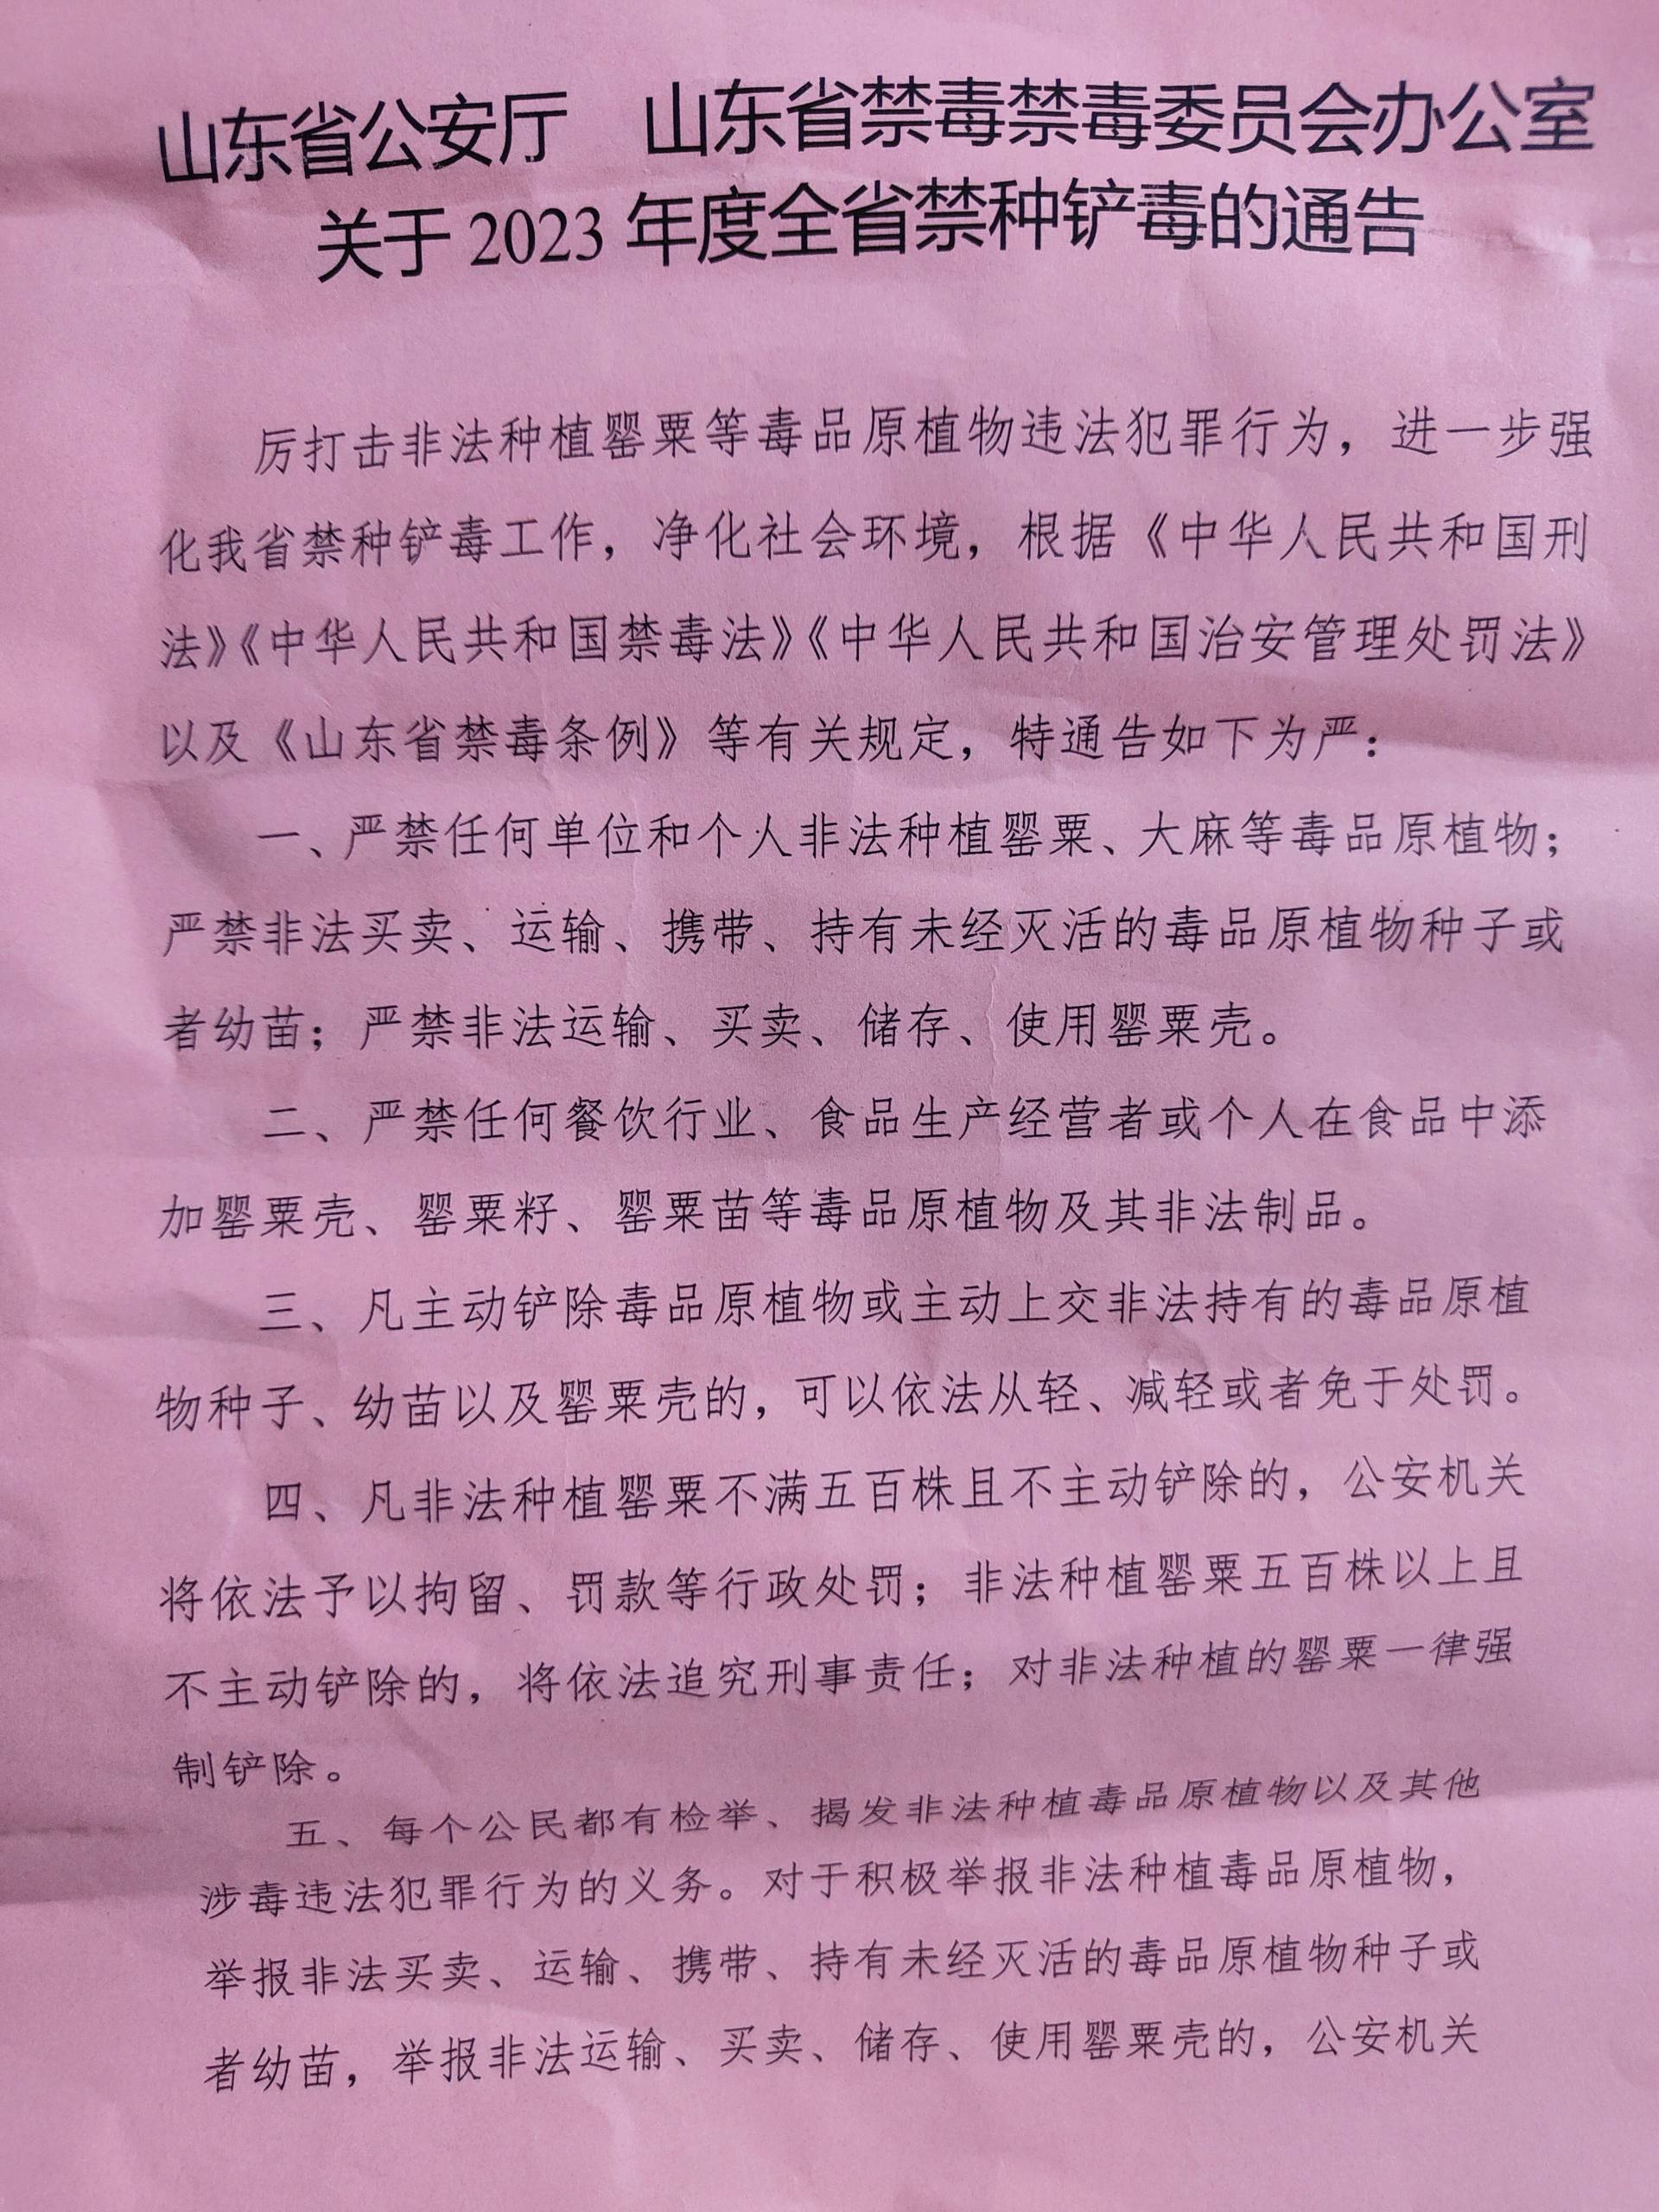 山东省公安厅　山东省禁毒禁毒委员会办公室
关于 2023 年度全省禁种铲毒的通告
厉打击非法种植罂粟等毒品原植物违法犯罪行为，进一步强
化我省禁种铲毒工作，净化社会环境，根据《中华人民共和国刑
法》《中华人民共和国禁毒法》《中华人民共和国治安管理处罚法》
以及《山东省禁毒条例》等有关规定，特通告如下为严：
一、严禁任何单位和个人非法种植罂粟、大麻等毒品原植物；
严禁非法买卖、运输、携带、持有未经灭活的毒品原植物种子或
者幼苗；严禁非法运输、买卖、储存、使用罂粟壳。
二、严禁任何餐饮行业、食品生产经营者或个人在食品中添
加罂粟壳、罂粟籽、罂粟苗等毒品原植物及其非法制品。
三、凡主动铲除毒品原植物或主动上交非法持有的毒品原植
物种子、幼苗以及罂粟壳的，可以依法从轻、减轻或者免于处罚。
四、凡非法种植罂粟不满五百株且不主动铲除的，公安机关
将依法予以拘留、罚款等行政处罚；非法种植罂粟五百株以上且
不主动铲除的，将依法追究刑事责任；对非法种植的罂粟一律强
制铲除。
五、每个公民都有检举、揭发非法种植毒品原植物以及其他
涉毒违法犯罪行为的义务。对于积极举报非法种植毒品原植物，
举报非法买卖、运输、携带、持有未经灭活的毒品原植物种子或
者幼苗，举报非法运输、买卖、储存、使用罂粟壳的，公安机关